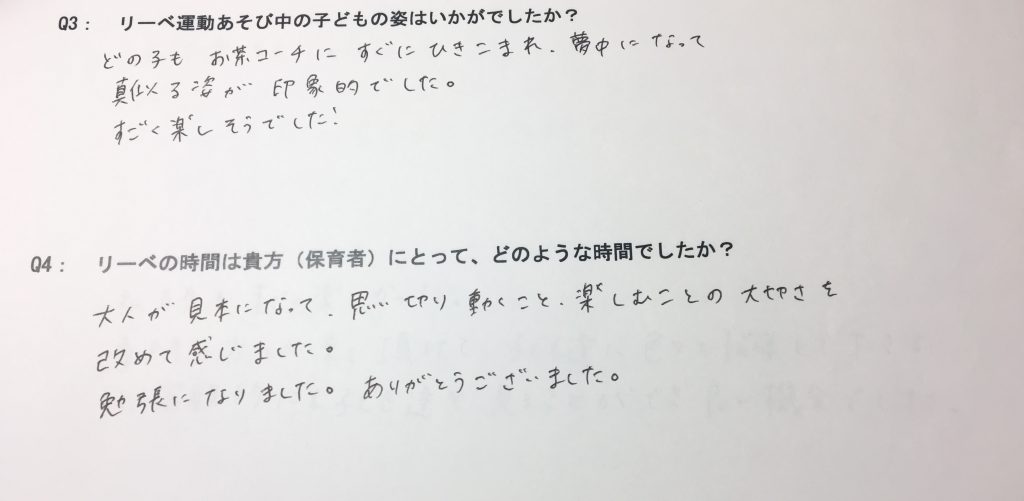 Q3： リーベ運動あそび中の子どもの姿はいかがでしたか？
どの子も お茶コーチに すぐに ひきこまれ、夢中に なって
真似る 姿が 印象的でした。
すごく 楽しそうでした！
Q4： リーベの時間は貴方（保育者）にとって、どのような時間でしたか？
大人が 見本に なって、思い切り 動くこと、楽しむことの 大切さを
改めて 感じました。
勉張に なりました。ありがとうございました。